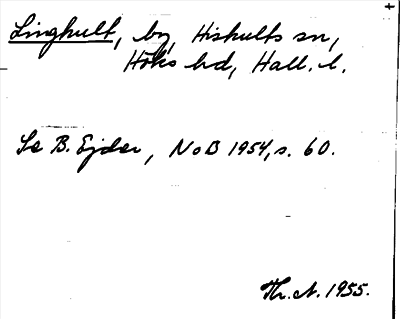 Linghult, by, Hishults sn,
Höks hd, Hall. l.
Se B. Ejder, NoB 1954, s. 60.
Th. A. 1955.